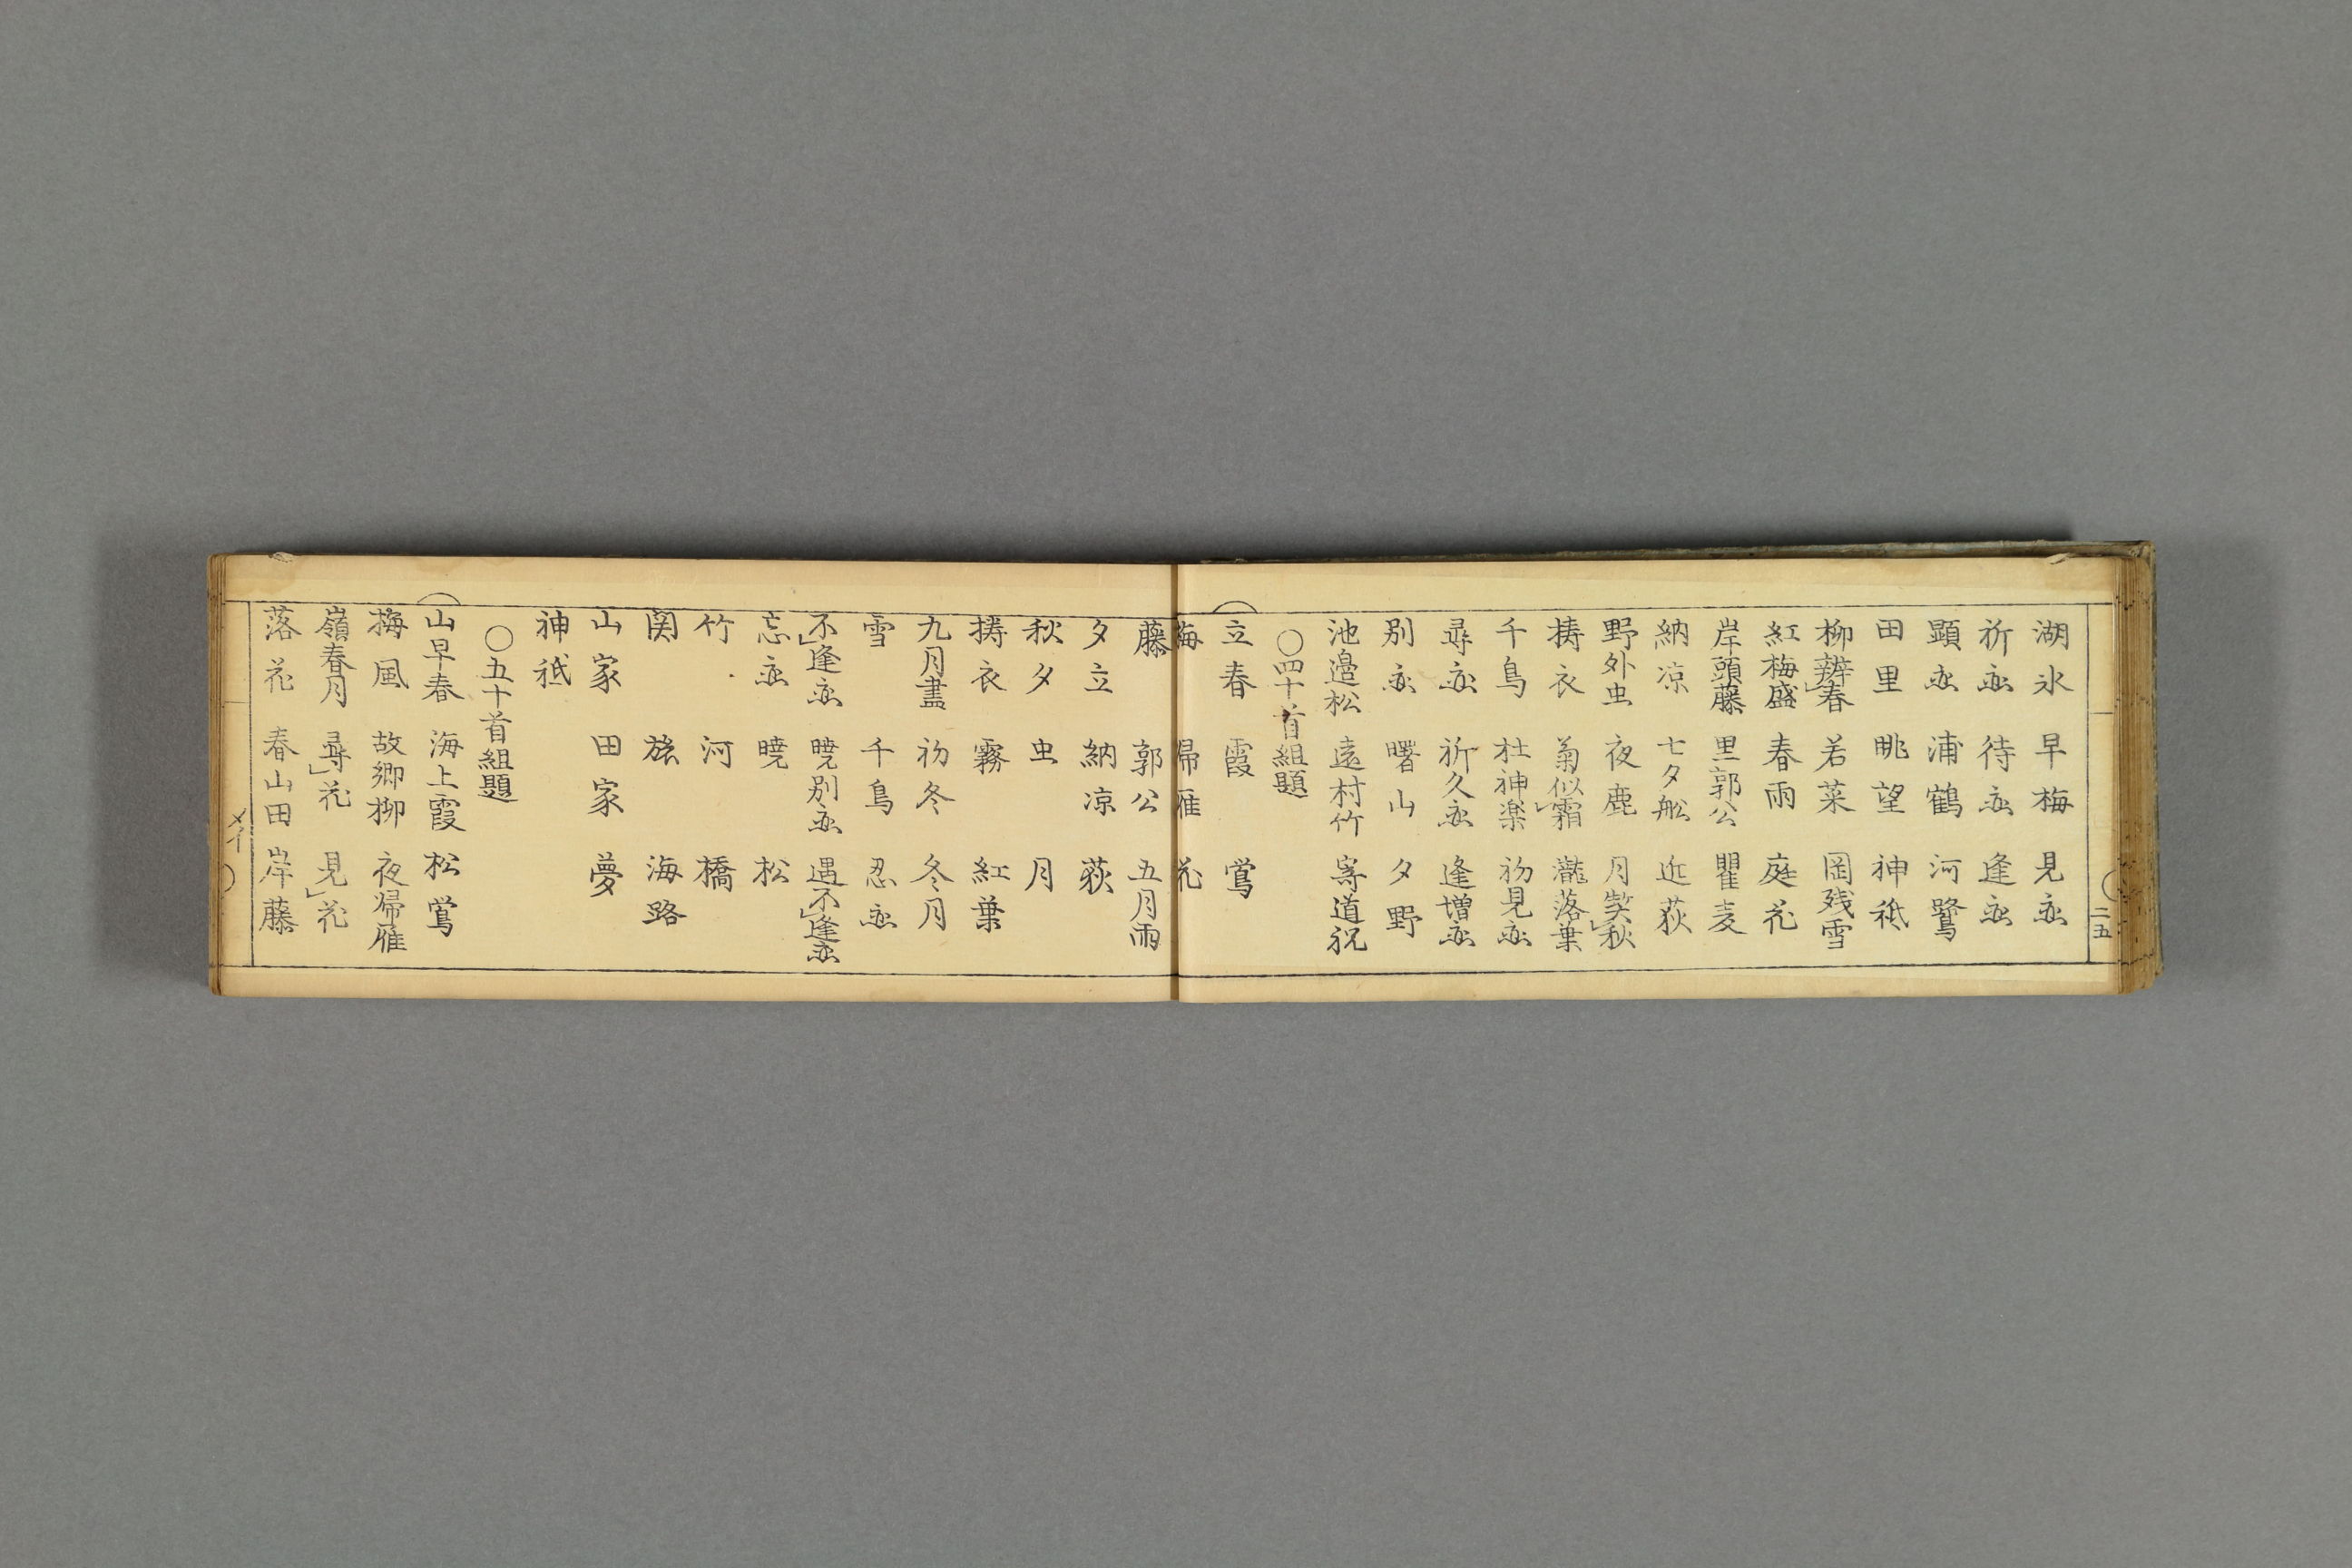 二五
湖氷 早梅 見恋
祈恋 待恋 逢恋
顕恋 浦鶴 河鷺
田里 眺望 神祇
柳辨春 若菜 岡残雪
紅梅盛 春雨 庭花
岸頭藤 里郭公 瞿麦
納涼 七夕舩 近荻
野外虫 夜鹿 月契秋
擣衣 菊似霜 瀧落葉
千鳥 杜神楽 初見恋
尋恋 祈久恋 逢増恋
別恋 曙山 夕野
池邉松 遠村竹 寄道祝
〇四十首組題
立春 霞 鴬
梅 帰雁 花
藤 郭公 五月雨
夕立 納凉 荻
秋夕 虫 月
擣衣 霧 紅葉
九月盡 初冬 冬月
雪 千鳥 忍恋
不逢恋 暁別恋 遇不逢恋
忘恋 暁 松
竹 河 橋
関 旅 海路
山家 田家 夢
神祇
〇五十首組題
山早春 海上霞 松鴬
梅風 故郷柳 夜帰雁
嶺春月 尋花 見花
落花 春山田 岸藤